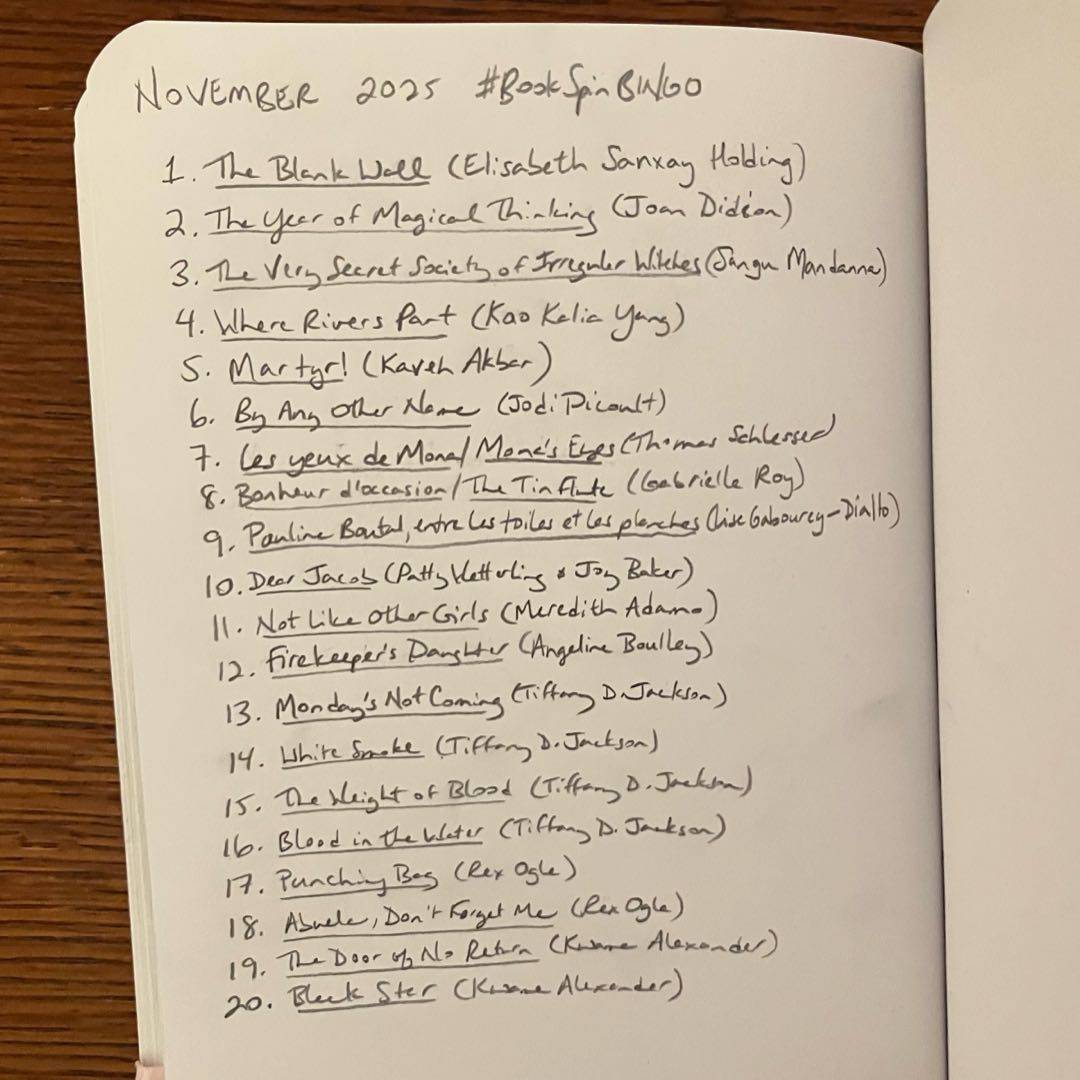 NOVEMBER 2025 #BookSpinBINGO
1. The Blank Wall (Elisabeth Sanxay Holding)
2. The Year of Magical Thinking (Joan Didion)
3. The Very Secret Society of Irregular Witches (Sangu Mandanna)
4. Where Rivers Part (Kao Kalia Yang)
5. Martyr! (Kaveh Akbar)
6. By Any Other Name (Jodi Picoult)
7. Les yeux de Mona/Mona's Eyes (Thomas Schlesser)
8. Bonheur d'occasion/The Tin Flute (Gabrielle Roy)
9. Pauline Boutal, entre les toiles et les planches (Lise Gaboury-Diallo)
10. Dear Jacob (Patty Wetterling & Joy Baker)
11. Not Like Other Girls (Meredith Adamo)
12. Firekeeper's Daughter (Angeline Boulley)
13. Monday's Not Coming (Tiffany D. Jackson)
14. White Smoke (Tiffany D. Jackson)
15. The Weight of Blood (Tiffany D. Jackson)
16. Blood in the Water (Tiffany D. Jackson)
17. Punching Bag (Rex Ogle)
18. Abuela, Don't Forget Me (Rex Ogle)
19. The Door of No Return (Kwame Alexander)
20. Black Star (Kwame Alexander)